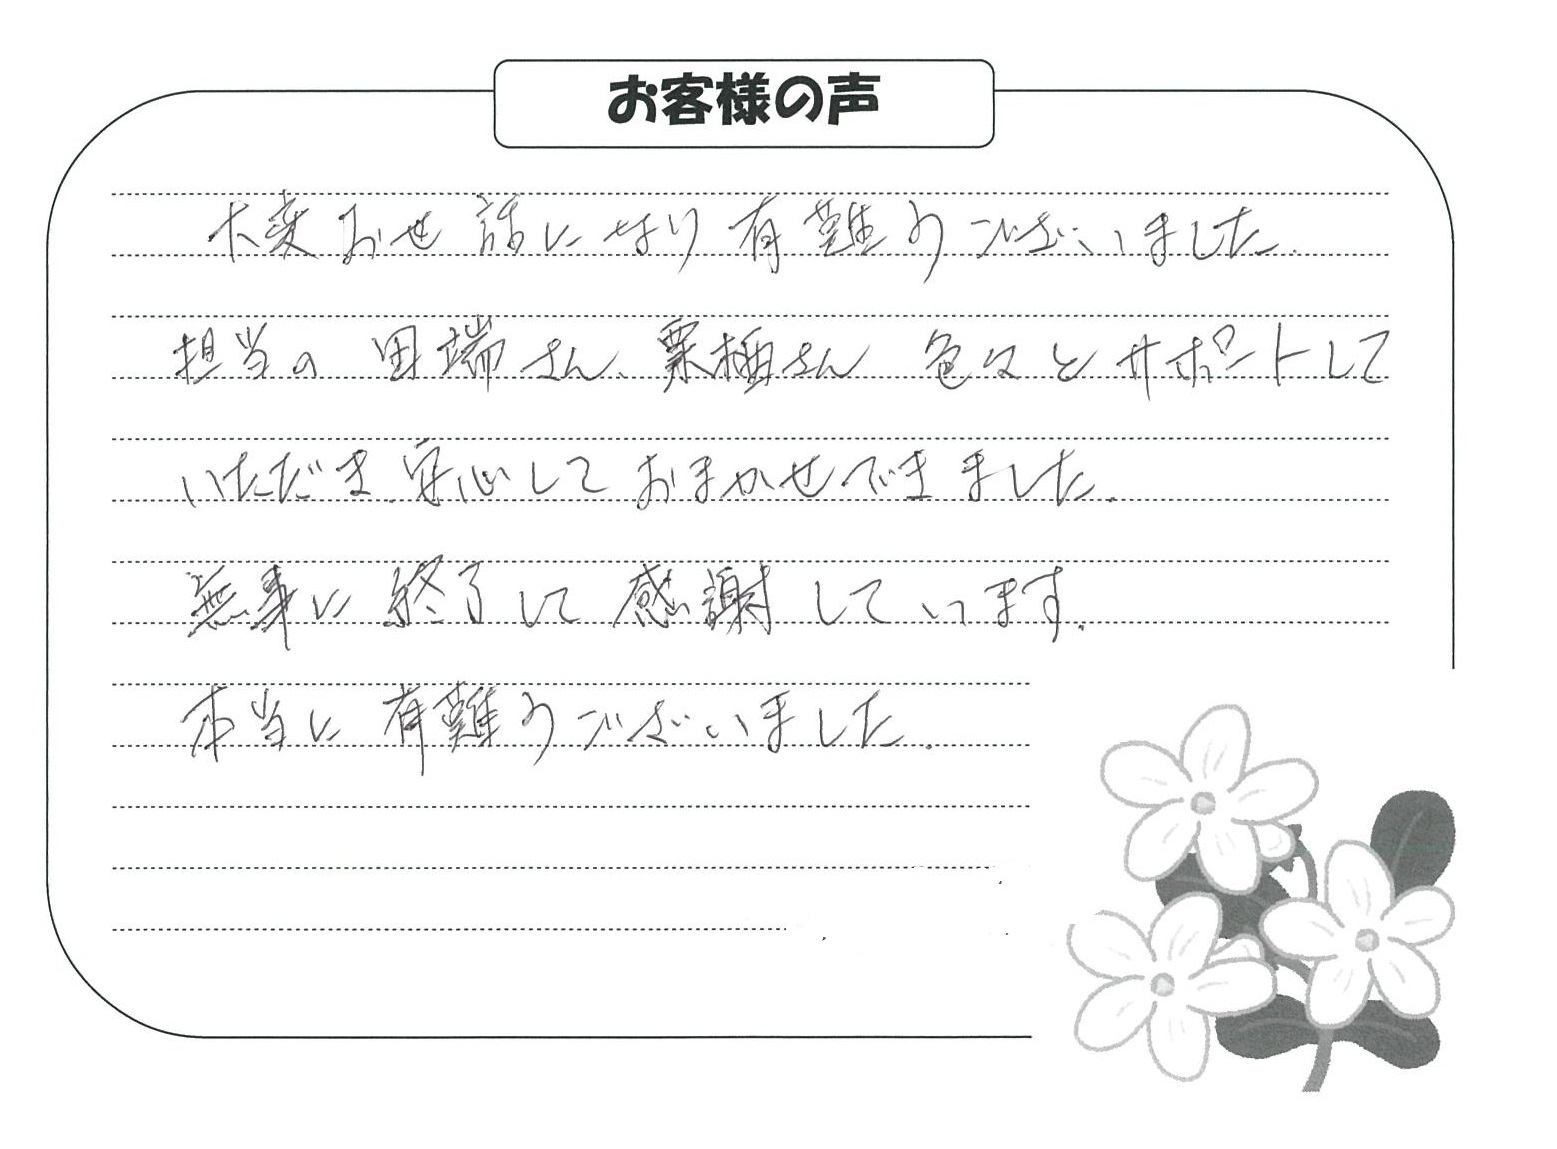 お客様の声
大変お世話になり有難うございました.
担当の田端さん、栗栖さん 色々とサポートして
いただき安心しておまかせできました.
無事に終了して感謝しています.
本当に有難うございました.